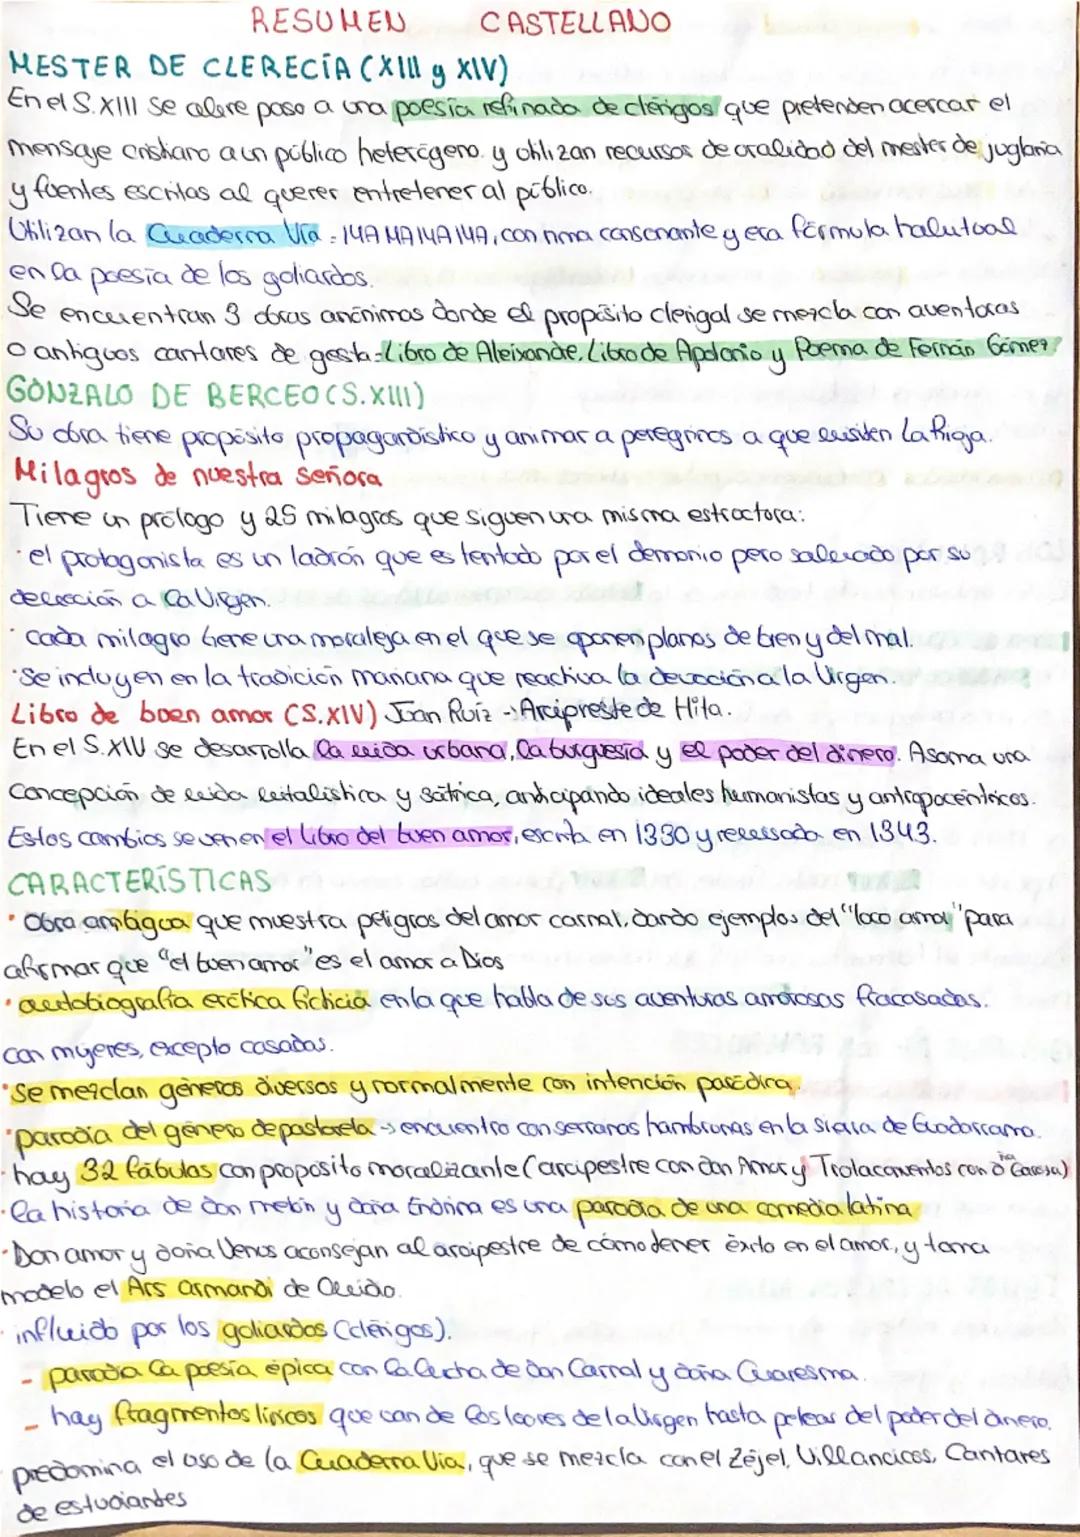 RESUMEN CASTELLANO
MESTER DE CLERECÍA (XIII y XIV)
En el S.XIII se abre paso a una poesía refinada de clérigos que pretenden acercar el
mensaje cristiano a un público heterógeno y utilizan recursos de oralidad del mester de juglaría
y fuentes escritas al querer entretener al público.
Utilizan la Cuaderna Vía = 14A 14A 14A 14A, con rima consonante y era fórmula habitual
en la poesía de los goliardos.
Se encuentran 3 obras anónimas donde el propósito clerigal se mezcla con aventuras
o antiguos cantares de gesta = Libro de Aleixandre, Libro de Apolonio y Poema de Fernán Gómez
GONZALO DE BERCEO (S.XIII)
Su obra tiene propósito propagandístico y animar a peregrinos a que visiten La Rioja.
Milagros de nuestra señora
Tiene un prólogo y 25 milagros que siguen una misma estructura:
· el protagonista es un ladrón que es tentado por el demonio pero salvado por su
devoción a la Virgen.
· cada milagro tiene una moraleja en el que se oponen planos de bien y del mal.
· Se incluyen en la tradición mariana que reactiva la devoción a la Virgen.
Libro de buen amor (S.XIV) Juan Ruíz → Arcipreste de Hita.
En el S.XIV se desarrolla la vida urbana, la burguesía y el poder del dinero. Asoma una
Concepción de vida vitalística y sátírica, anticipando ideales humanistas y antropocéntricos.
Estos cambios se ven en el libro del buen amor, escrita en 1330 y revessada en 1343.
CARACTERÍSTICAS
· Obra ambigua que muestra peligros del amor carnal, dando ejemplos del "loco amor" para
afirmar que "el buen amor" es el amor a Dios
· autobiografía erótica ficticia en la que habla de sus aventuras amorosas fracasadas.
con mujeres, excepto casadas.
· Se mezclan géneros diversos y normalmente con intención paródica.
· parodia del género de pastorela → encuentro con serranas hambrunas en la sierra de Guadarrama.
· hay 32 fábulas con proposito moralizante (arcipestre con don Amor y Trotaconventos con dña Garosa)
· la historia de don melón y doña Endrina es una parodia de una comedia latina
· Don amor y doña Venus aconsejan al arcipestre de cómo tener éxito en el amor, y toma
modelo el Ars armandi de Ovidio.
· influido por los goliardos (clérigos).
- parodia la poesía épica con la lucha de don Carnal y doña Cuaresma.
- hay fragmentos líricos que van de los loores de la Virgen hasta peleas del poder del dinero.
predomina el uso de la Cuaderna Vía, que se mezcla con el Zéjel, Villancicos, Cantares
de estudiantes